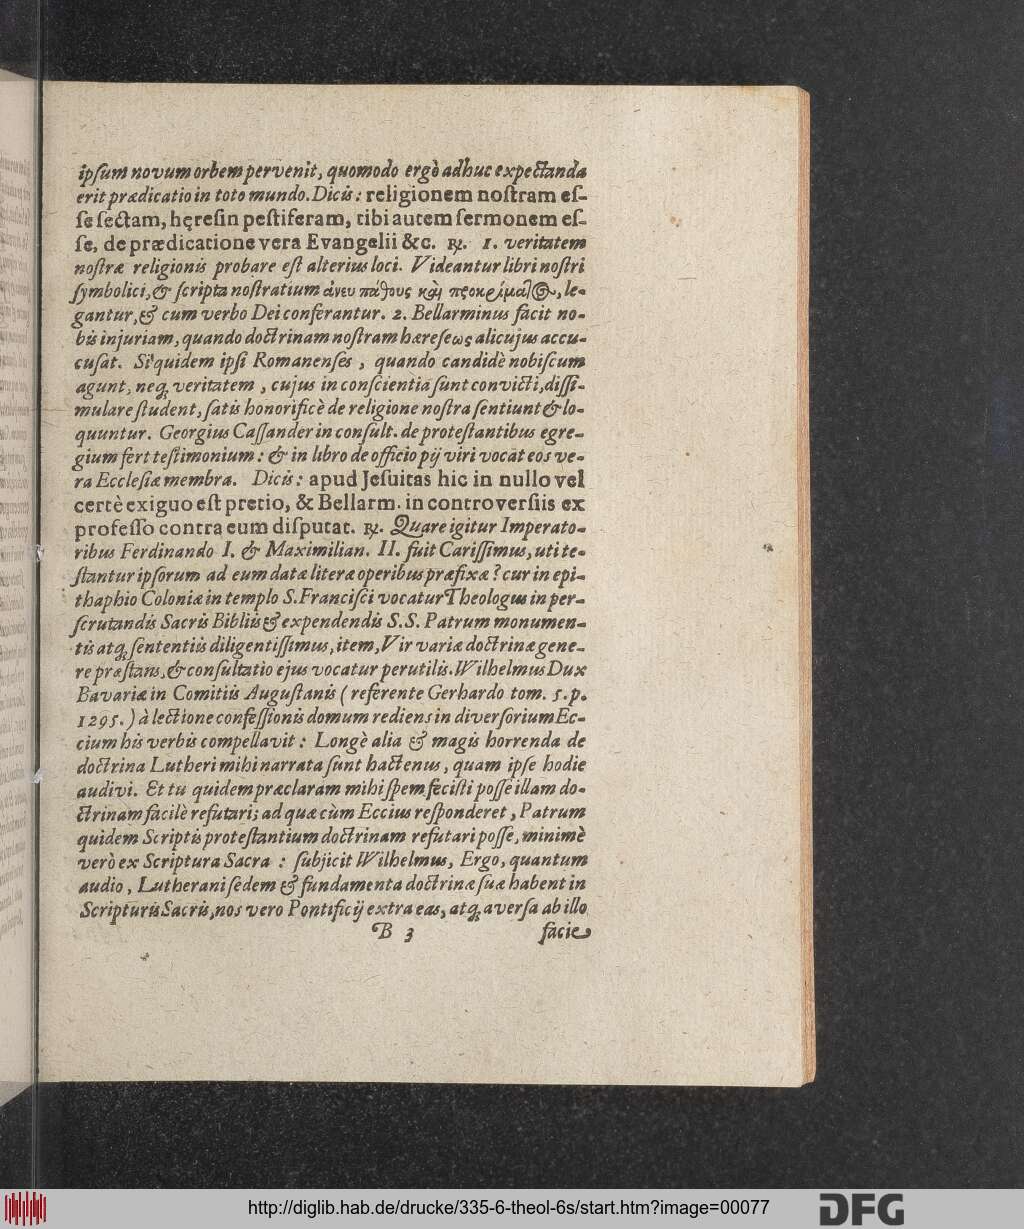 ipſum novum orbem pervenit, quomodo ergò adhuc expectanda
erit prædicatio in toto mundo. Dicis: religionem noſtram eſ-
ſe ſectam, hęreſin peſtiferam, tibi autem ſermonem eſ-
ſe, de prædicatione vera Evangelii &c. ℞. 1. veritatem
noſtræ religionis probare eſt alterius loci. Videantur libri noſtri
ſymbolici, & ſcripta noſtratium ἄνευ πάθους καὶ προκρίματ(ος), le-
gantur, & cum verbo Dei conferantur. 2. Bellarminus facit no-
bis injuriam, quando doctrinam noſtram hæreſεως alicujus accu-
cuſat. Siquidem ipſi Romanenſes, quando candidè nobiſcum
agunt, neq; veritatem, cujus in conſcientiâ ſunt convicti, diſſi-
mulare ſtudent, ſatis honorificè de religione noſtra ſentiunt & lo-
quuntur. Georgius Caſſander in conſult. de proteſtantibus egre-
gium fert teſtimonium: & in libro de officio pij viri vocat eos ve-
ra Eccleſiæ membra. Dicis: apud Jeſuitas hic in nullo vel
certè exiguo eſt pretio, & Bellarm. in controverſiis ex
profeſſo contra eum diſputat. ℞. Quare igitur Imperato-
ribus Ferdinando I. & Maximilian. II. fuit Cariſſimus, uti te-
ſtantur ipſorum ad eum datæ literæ operibus præfixæ? cur in epi-
thaphio Coloniæ in templo S. Franciſci vocatur Theologus in per-
ſcrutandis Sacris Bibliis & expendendis S.S. Patrum monumen-
tis atq; ſententiis diligentiſſimus, item, Vir variæ doctrinæ gene-
re præſtans, & conſultatio ejus vocatur perutilis. Wilhelmus Dux
Bavariæ in Comitiis Auguſtanis (referente Gerhardo tom. 5. p.
1295.) à lectione confeſſionis domum rediens in diverſorium Ec-
cium his verbis compellavit: Longè alia & magis horrenda de
doctrina Lutheri mihi narrata ſunt hactenus, quam ipſe hodie
audivi. Et tu quidem præclaram mihi ſpem feciſti poſſe illam do-
ctrinam facilè refutari; ad quæ cùm Eccius reſponderet, Patrum
quidem Scriptis proteſtantium doctrinam refutari poſſe, minimè
verò ex Scriptura Sacra: ſubjicit Wilhelmus, Ergo, quantum
audio, Lutherani ſedem & fundamenta doctrinæ ſuæ habent in
Scripturis Sacris, nos vero Pontificij extra eas, atq; averſa ab illo
B 3 facie
http://diglib.hab.de/drucke/335-6-theol-6s/start.htm?image=00077
DFG